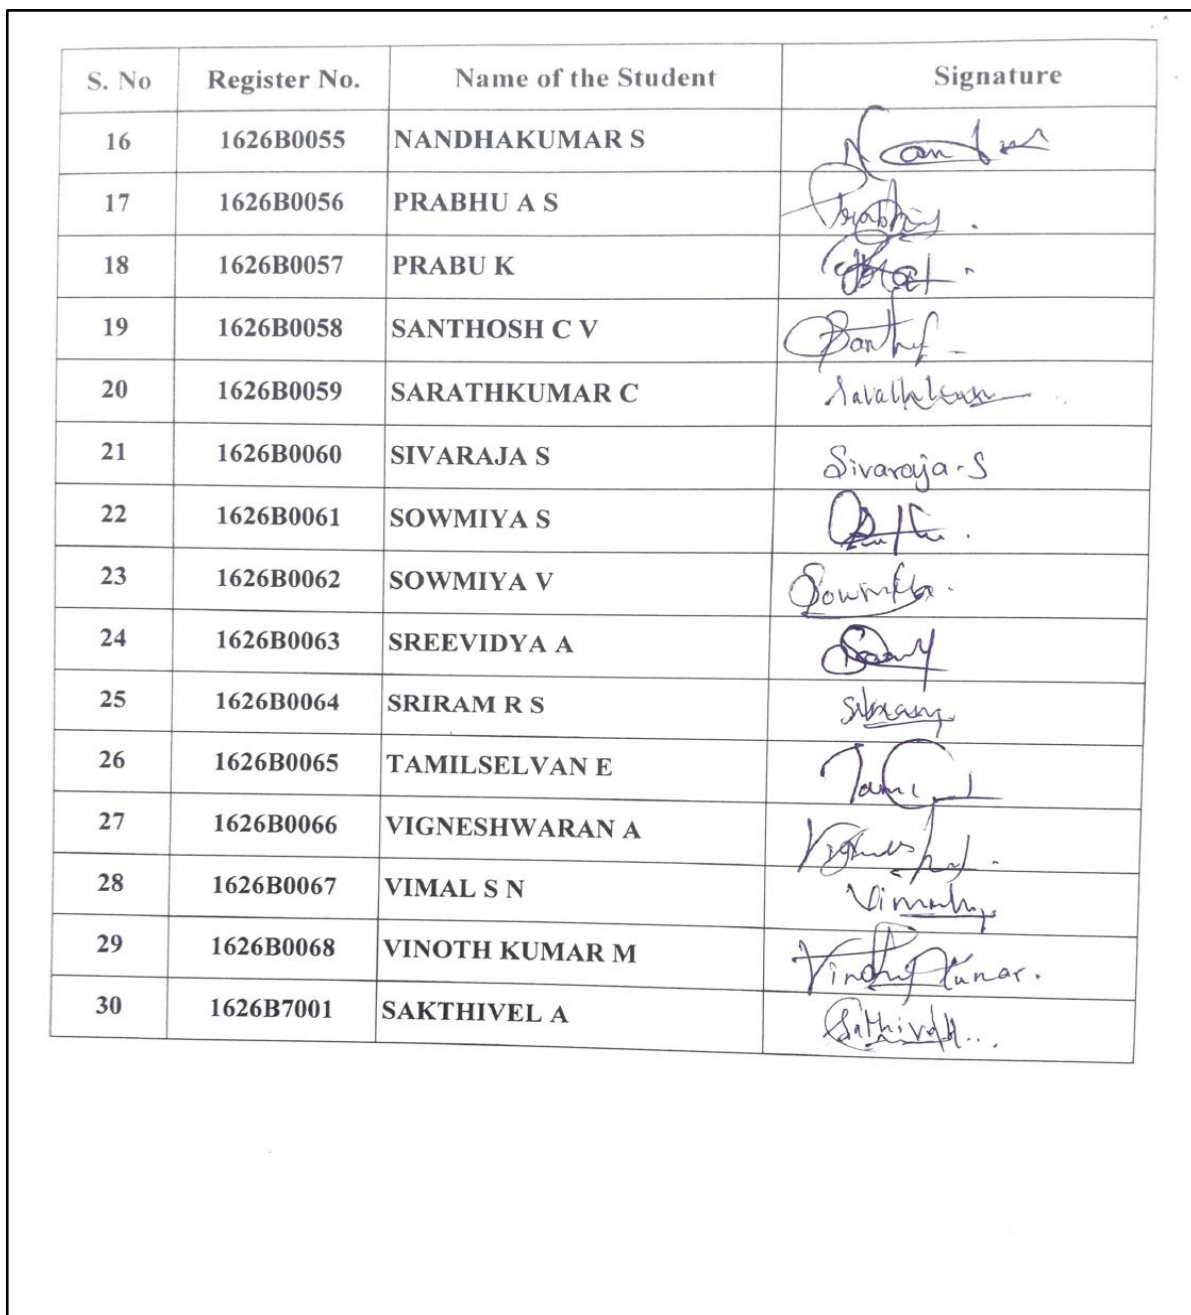 S. No Register No. Name of the Student Signature
16 1626B0055 NANDHAKUMAR S
17 1626B0056 PRABHU A S
18 1626B0057 PRABU K
19 1626B0058 SANTHOSH C V
20 1626B0059 SARATHKUMAR C
21 1626B0060 SIVARAJA S Sivaraja-S
22 1626B0061 SOWMIYA S
23 1626B0062 SOWMIYA V
24 1626B0063 SREEVIDYA A
25 1626B0064 SRIRAM R S
26 1626B0065 TAMILSELVAN E
27 1626B0066 VIGNESHWARAN A
28 1626B0067 VIMAL S N
29 1626B0068 VINOTH KUMAR M
30 1626B7001 SAKTHIVEL A